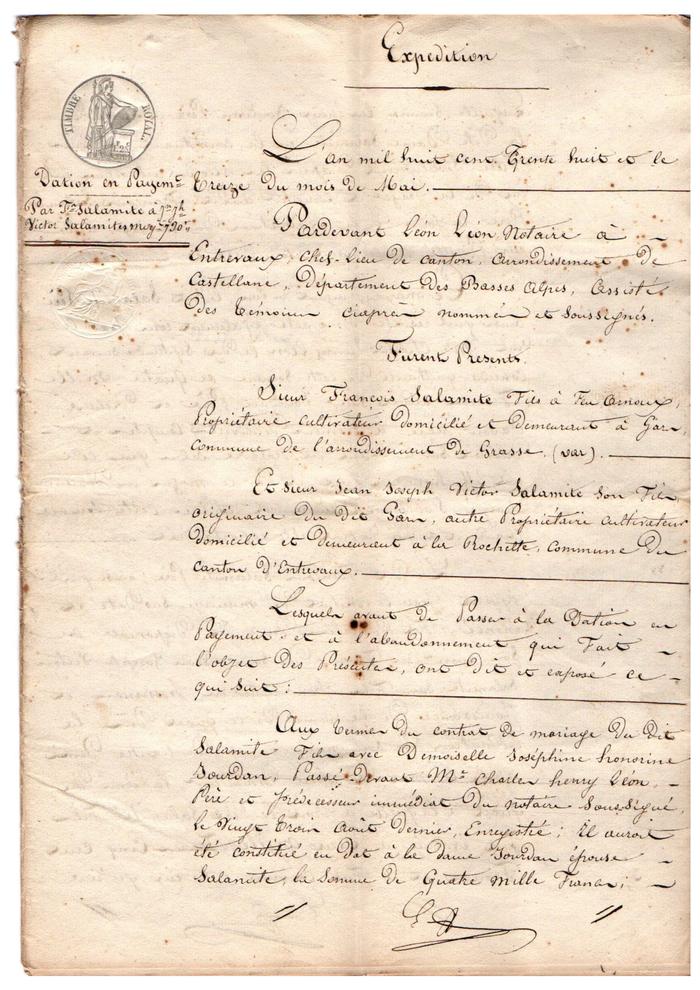 Expédition
TIMBRE ROYAL.
L'an mil huit cent Trente huit et le
Dation en Payemt
Treize du mois de Mai.
Par Fs Salamite à
Victor Salamite
Pardevant Léon Léon Notaire à
Entrevaux, chef-Lieu de canton, arrondissement de
Castellane, Département des Basses Alpes, Assisté
des témoins ciaprès nommés et soussignés.
Furent Présents
Sieur François Salamite Fils à Feu Arnoux,
Propriétaire cultivateur domicilié et demeurant à Gars,
commune de l'arrondissement de Grasse (var).
Et Sieur Jean Joseph Victor Salamite son Fils
originaire du Dit Gars, autre Propriétaire cultivateur
domicilié et demeurant à la Rochette, commune du
canton d'Entrevaux.
Lesquels avant de Passer à la Dation en
Payement et à l'abandonnement qui Fait
l'objet des Présentes, ont dit et exposé ce
qui suit:
Aux termes du contrat de mariage du dit
Salamite Fils avec Demoiselle Joséphine honorine
Jourdan, Passé devant Me Charles henry Léon,
Père et prédécesseur immédiat du notaire Soussigné,
le Vingt Trois Août dernier, Enregistré; Il auroit
été constitué en Dot à la Dame Jourdan épouse
Salamite, la Somme de Quatre mille Francs;